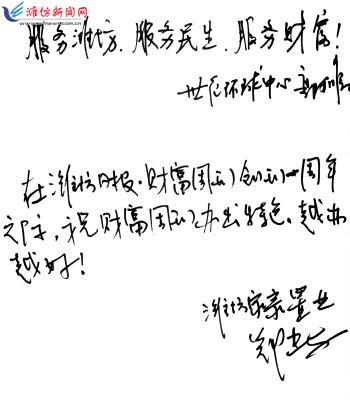 潍坊新闻网
服务潍坊、服务民生、服务财富！
世纪环球中心
在潍坊日报·财富周刊创刊一周年
之际，祝财富周刊办出特色、越办
越好！
潍坊豪置业
郑